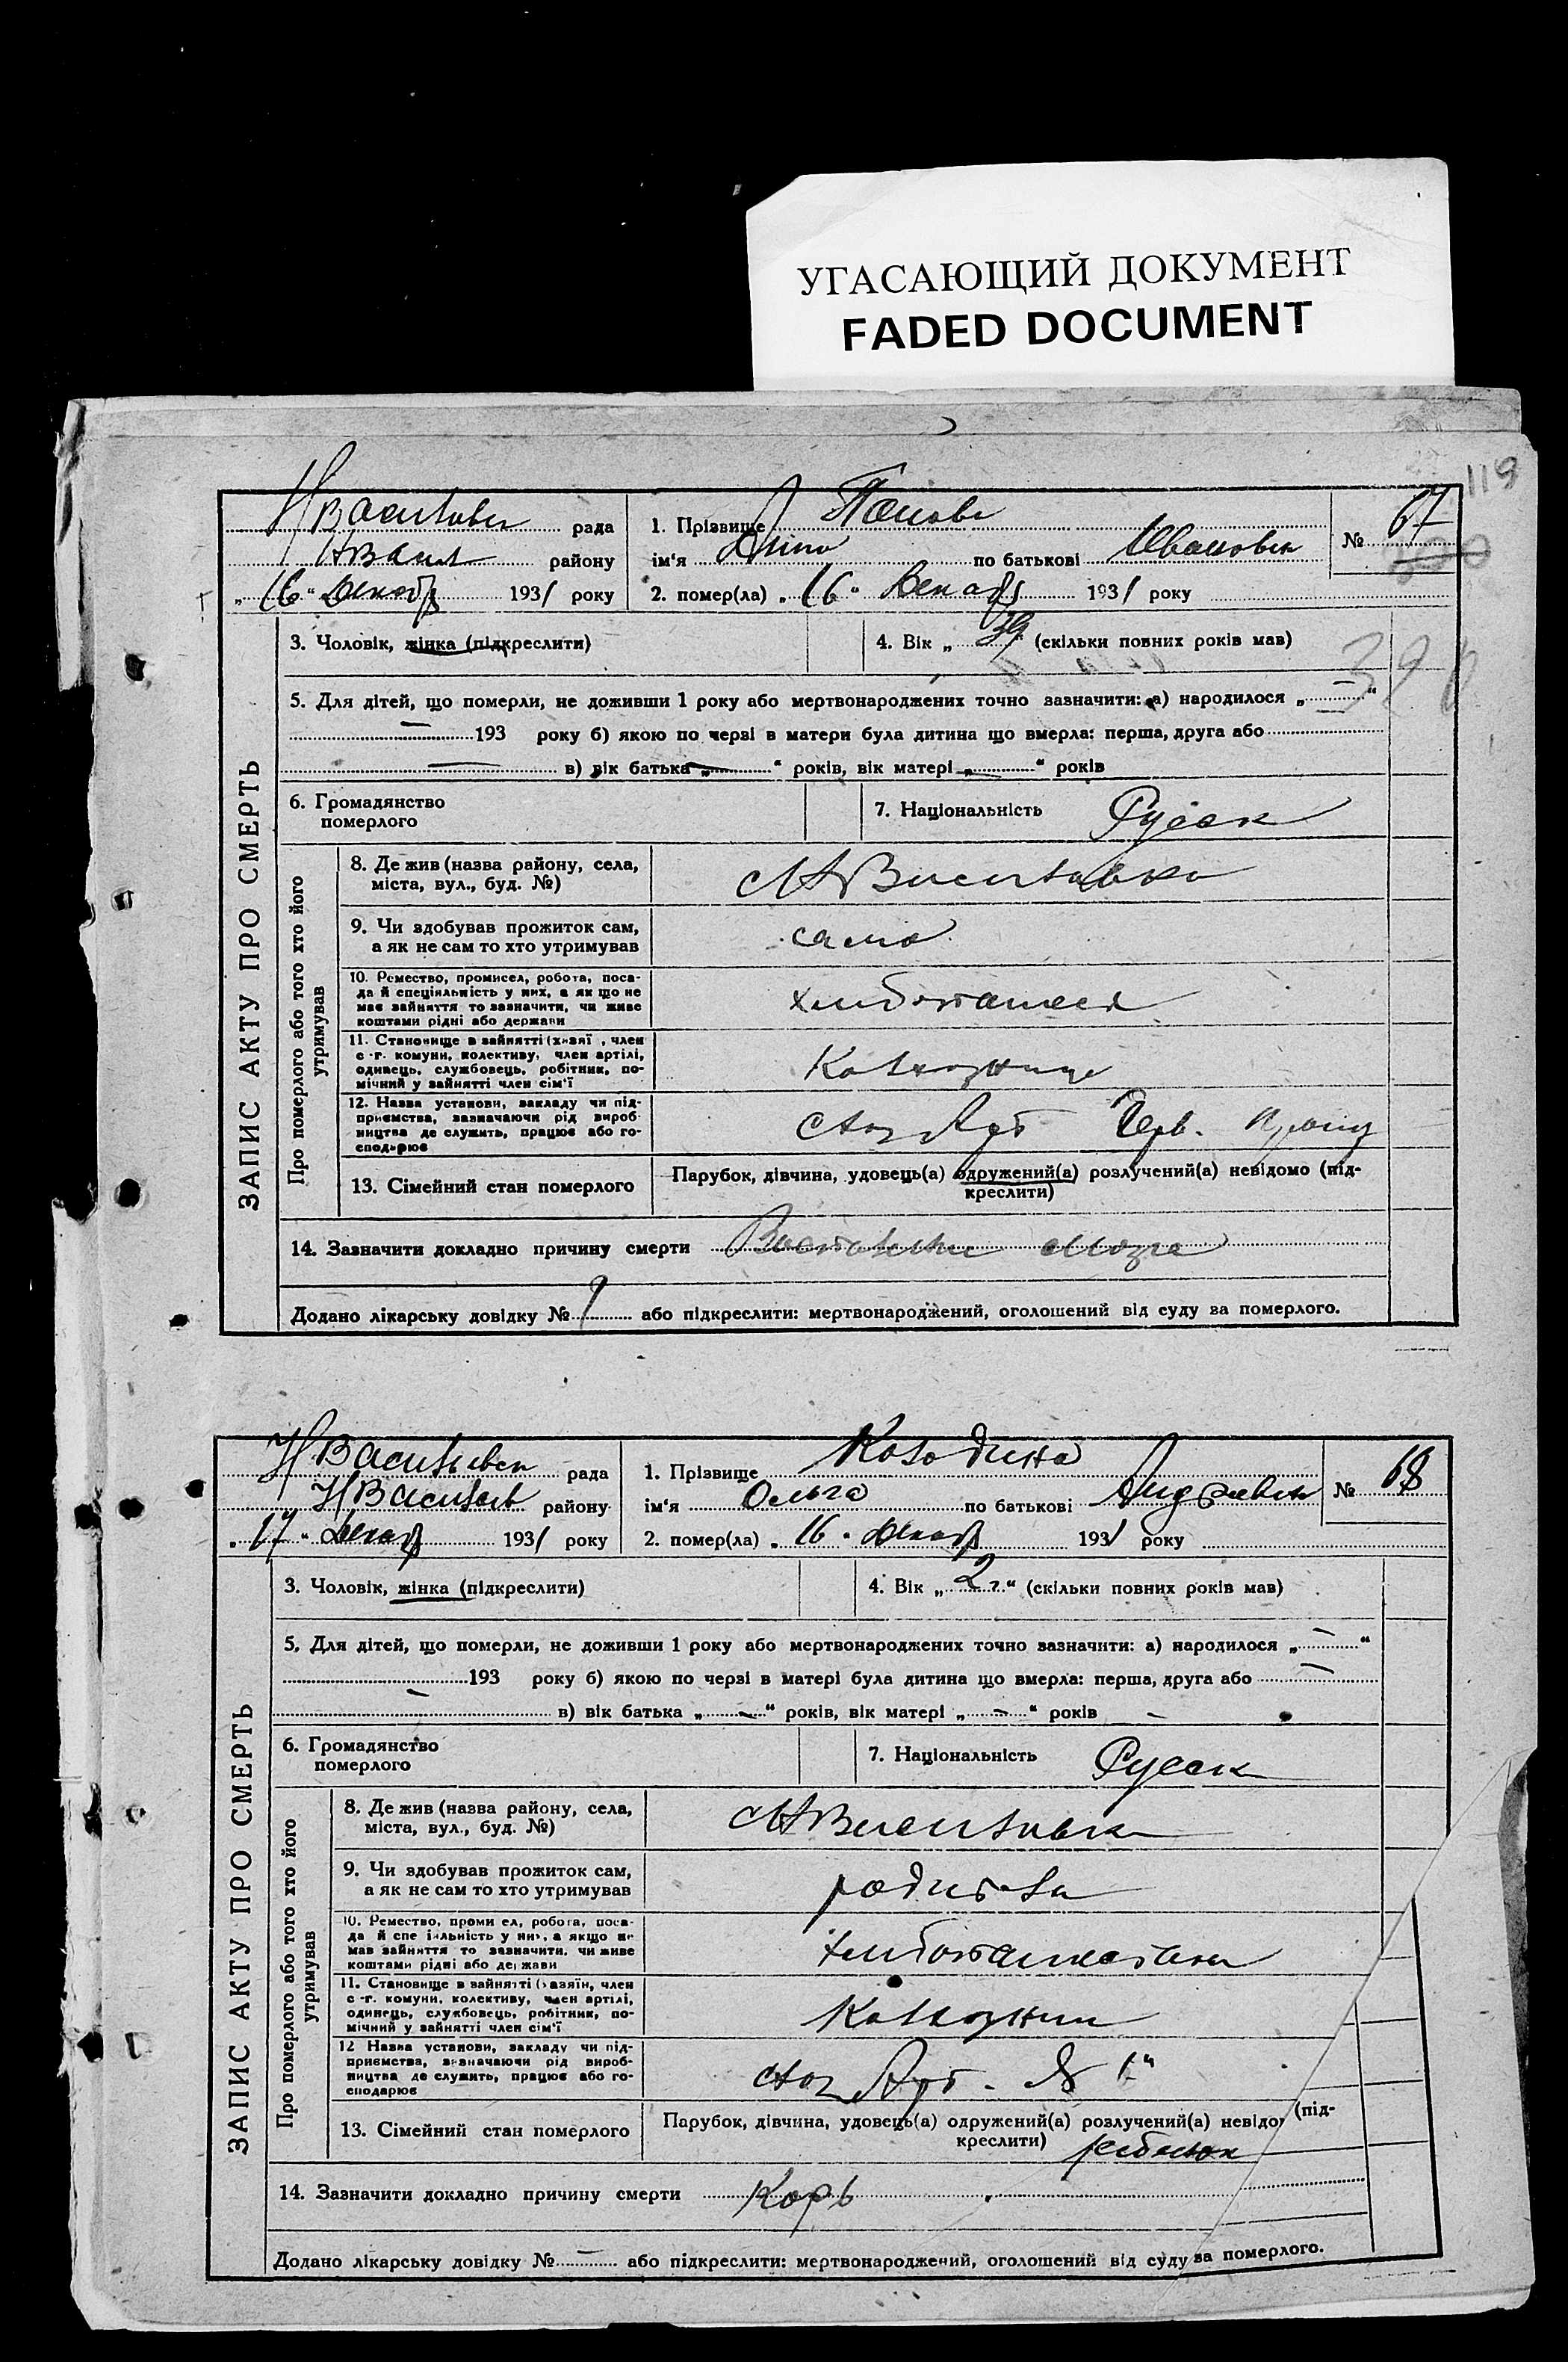 УГАСАЮЩИЙ ДОКУМЕНТ
FADED DOCUMENT
119
рада 1. Прізвище Панова № 67
НВасил району ім'я Анна по батькові Ивановн
„16“ Декабр 1931 року 2. помер(ла) „16“ Декабр 1931 року
3. Чоловік, жінка (підкреслити) 4. Вік „39“ (скільки повних років мав)
5. Для дітей, що померли, не доживши 1 року або мертвонароджених точно зазначити: а) народилося „ — “
— 193 року б) якою по черзі в матери була дитина що вмерла: перша, друга або
— в) вік батька „ — “ років, вік матері „ — “ років
6. Громадянство померлого 7. Національність Русск
ЗАПИС АКТУ ПРО СМЕРТЬ
Про померлого або того хто його утримував
8. Де жив (назва району, села,
міста, вул., буд. №) НВасильевка
9. Чи здобував прожиток сам,
а як не сам то хто утримував сама
10. Ремество, промисел, робота, поса-
да й спеціяльність у них, а як що не
має зайняття то зазначити, чи живе
коштами рідні або держави
11. Становище в зайнятті (хазяї , член
с -г. комуни, колективу, член артілі,
одинець, службовець, робітник, по-
мічний у зайнятті член сім'ї Колхозница
12. Назва установи, закладу чи під-
приємства, зазначаючи рід вироб-
ництва де служить, працює або го-
сподарює Арт Черв.
13. Сімейний стан померлого Парубок, дівчина, удовець(а) одружений(а) розлучений(а) невідомо (під-
креслити)
14. Зазначити докладно причину смерти мозга
Додано лікарську довідку № 9 або підкреслити: мертвонароджений, оголошений від суду за померлого.
НВасильевск рада 1. Прізвище Колодина № 68
НВасильев району ім'я Ольга по батькові Андреевн
„17“ Декабр 1931 року 2. помер(ла) „16“ Декабр 1931 року
3. Чоловік, жінка (підкреслити) 4. Вік „2 г.“ (скільки повних років мав)
5. Для дітей, що померли, не доживши 1 року або мертвонароджених точно зазначити: а) народилося „ — “
193 року б) якою по черзі в матері була дитина що вмерла: перша, друга або —
— в) вік батька „ — “ років, вік матері „ — “ років —
6. Громадянство померлого 7. Національність Русск
ЗАПИС АКТУ ПРО СМЕРТЬ
Про померлого або того хто його утримував
8. Де жив (назва району, села,
міста, вул., буд. №) НВасильевк
9. Чи здобував прожиток сам,
а як не сам то хто утримував
10. Ремество, проми ел, робота, поса-
да й спе іяльність у них, а якщо не
мав зайняття то зазначити, чи живе
коштами рідні або держави
11. Становище в зайнятті (хазяїн, член
с -г. комуни, колективу, член артілі,
одинець, службовець, робітник, по-
мічний у зайнятті член сім'ї
12 Назва установи, закладу чи під-
приємства, зазначаючи рід вироб-
ництва де служить, працює або го-
сподарює Арт. № 1
13. Сімейний стан померлого Парубок, дівчина, удовець(а) одружений(а) розлучений(а) невідо (під-
креслити) ребенок
14. Зазначити докладно причину смерти Корь
Додано лікарську довідку № — або підкреслити: мертвонароджений, оголошений від суду за померлого.